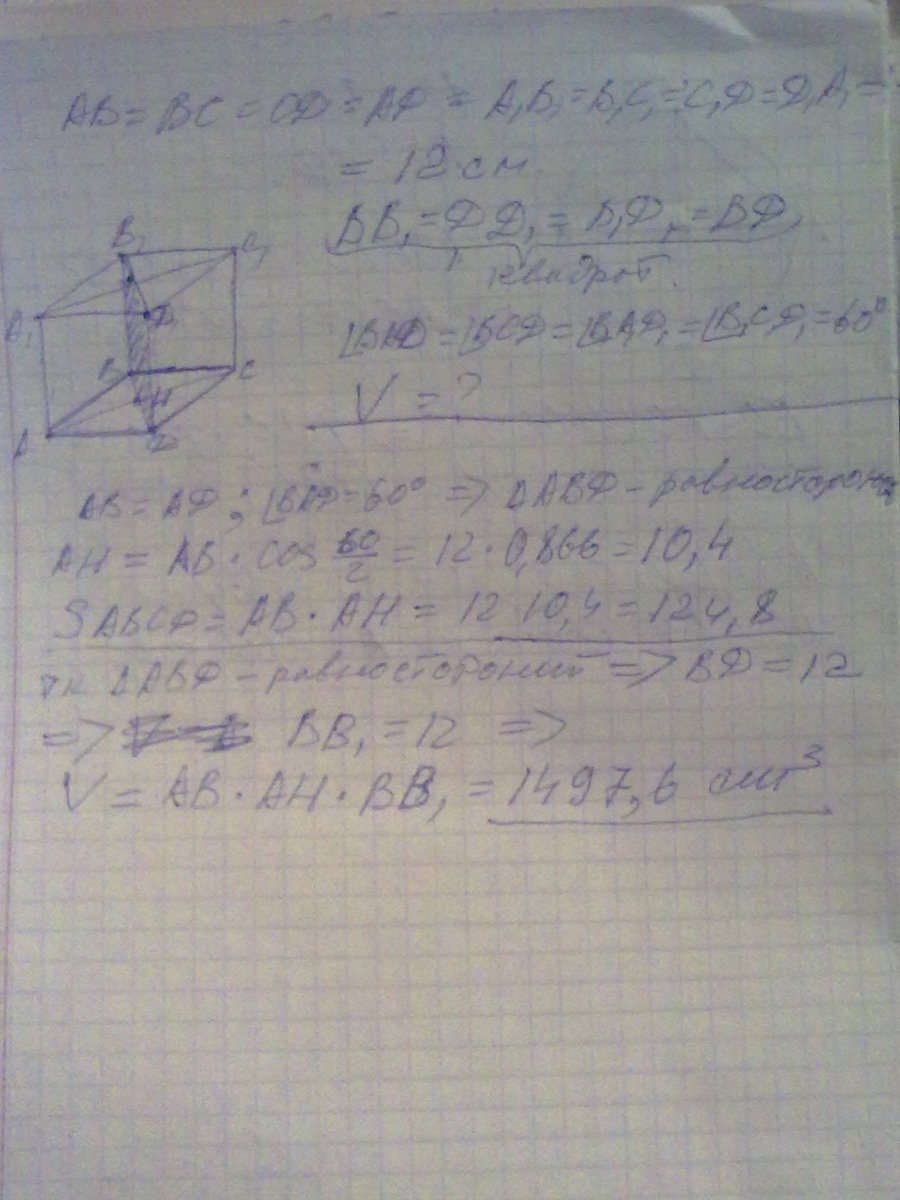 AB = BC = CD = AD = A₁B₁ = B₁C₁ = C₁D = D₁A₁ =
= 12 см
BB₁ = DD₁ = B₁D₁ = BD
квадрат.
∠BAD = ∠BCD = ∠B₁A₁D₁ = ∠B₁C₁D₁ = 60°
V = ?
B₁
C₁
A₁
D₁
B
C
H
A
D
AB = AD ; ∠BAD = 60° => ΔABD - равносторон
AH = AB · cos 60/2 = 12 · 0,866 = 10,4
SABCD = AB · AH = 12 10,4 = 124,8
тк ΔABD - равностороний => BD = 12
=> BB₁ = 12 =>
V = AB · AH · BB₁ = 1497,6 см³